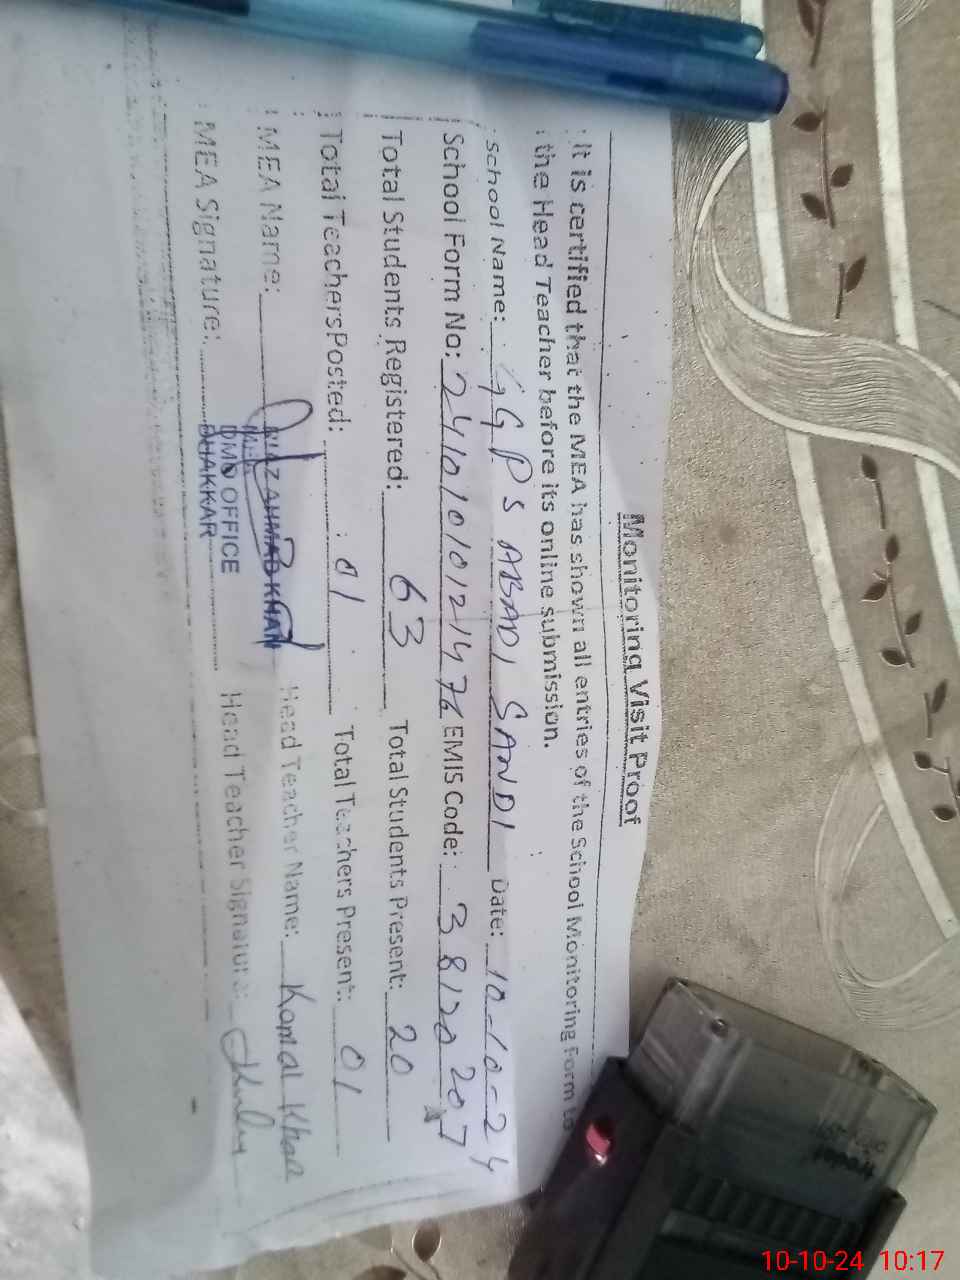 Monitoring Visit Proof
It is certified that the MEA has shown all entries of the School Monitoring Form to
the Head Teacher before its online submission.
School Name: GGPS ABADI SANDI Date: 10-10-24
School Form No: EMIS Code:
Total Students Registered: 63 Total Students Present: 20
Total Teachers Posted: 01 Total Teachers Present: 01
MEA Name: RIAZ AHMAD KHAN Head Teacher Name: Komal Khan
MEA
DMO OFFICE
BHAKKAR
MEA Signature: Head Teacher Signature:
10-10-24 10:17